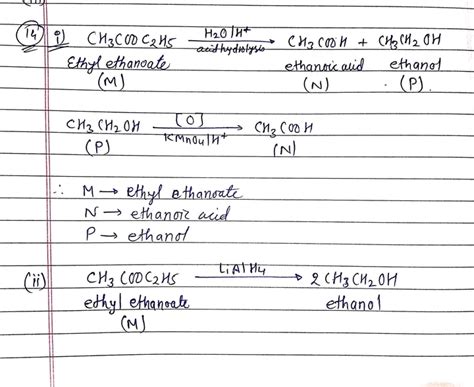 14. i) CH3COOC2H5 H2O/H+ acid hydrolysis → CH3COOH + CH3CH2OH
Ethyl ethanoate ethanoic acid ethanol
(M) (N) (P).
CH3CH2OH [O] KMnO4/H+ → CH3COOH
(P) (N)
∴ M → ethyl ethanoate
N → ethanoic acid
P → ethanol
(ii) CH3COOC2H5 LiAlH4 → 2CH3CH2OH
ethyl ethanoate ethanol
(M)